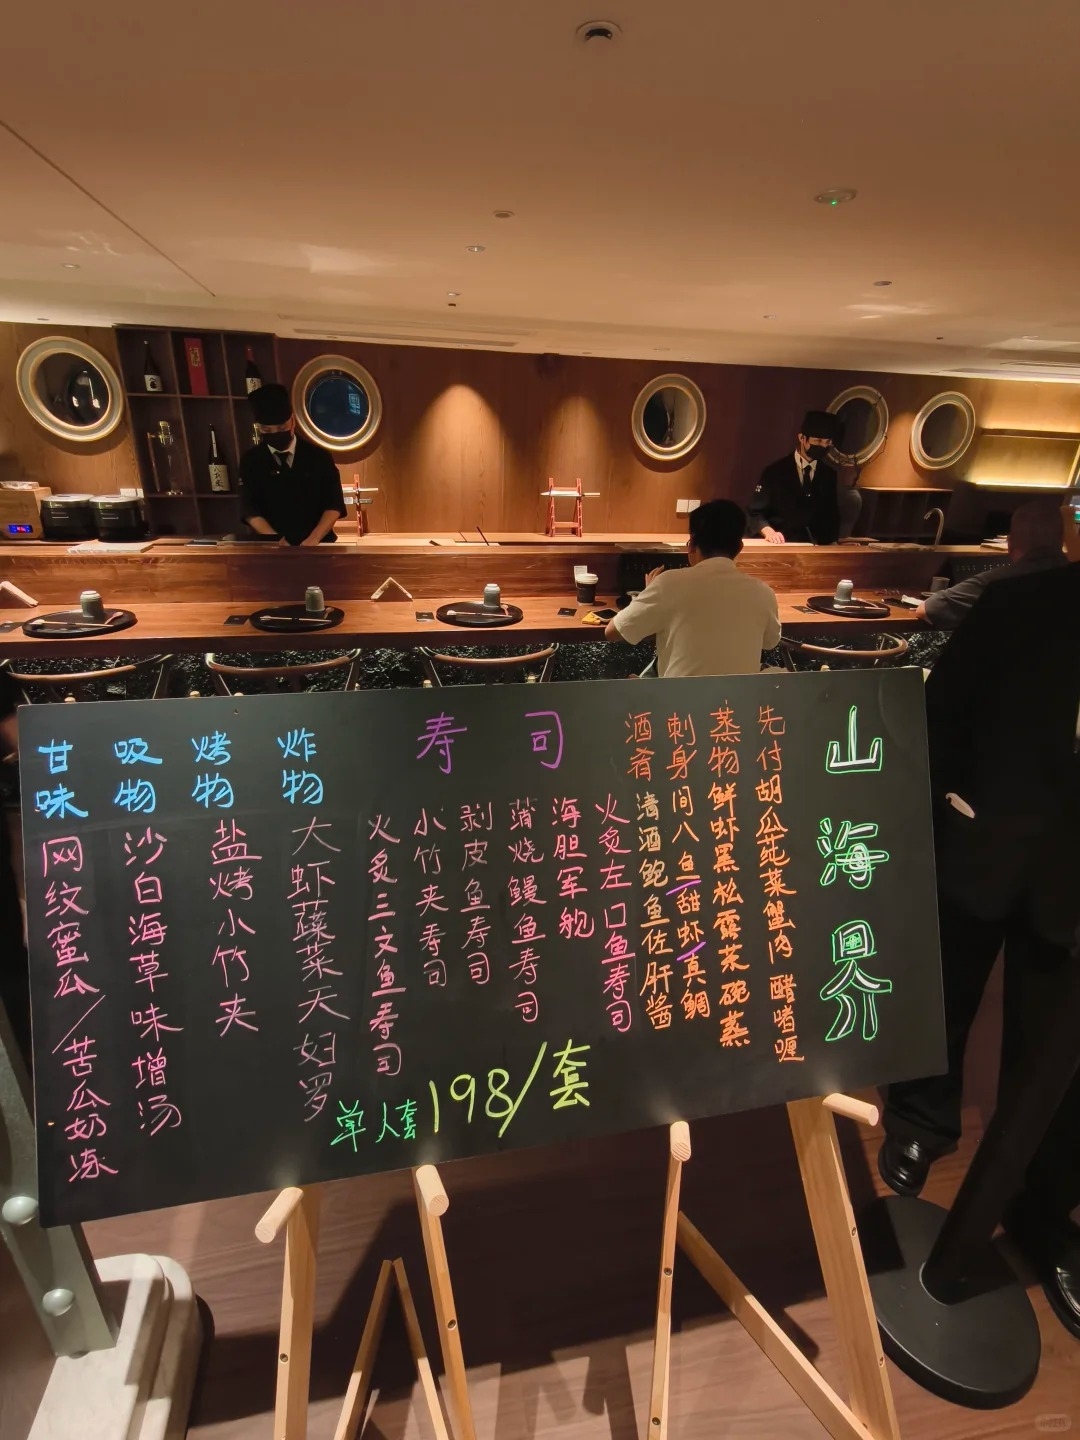 山海界
先付 胡瓜莼菜蟹肉 醋啫喱
蒸物 鲜虾黑松露茶碗蒸
刺身 间八鱼/甜虾/真鲷
酒肴 清酒鲍鱼佐肝酱
寿司
火炙左口鱼寿司
海胆军舰
蒲烧鳗鱼寿司
剥皮鱼寿司
小竹夹寿司
火炙三文鱼寿司
炸物 大虾蔬菜天妇罗
烤物 盐烤小竹夹
吸物 沙白海草味增汤
甘味 网纹蜜瓜/苦瓜奶冻
单人套198/套